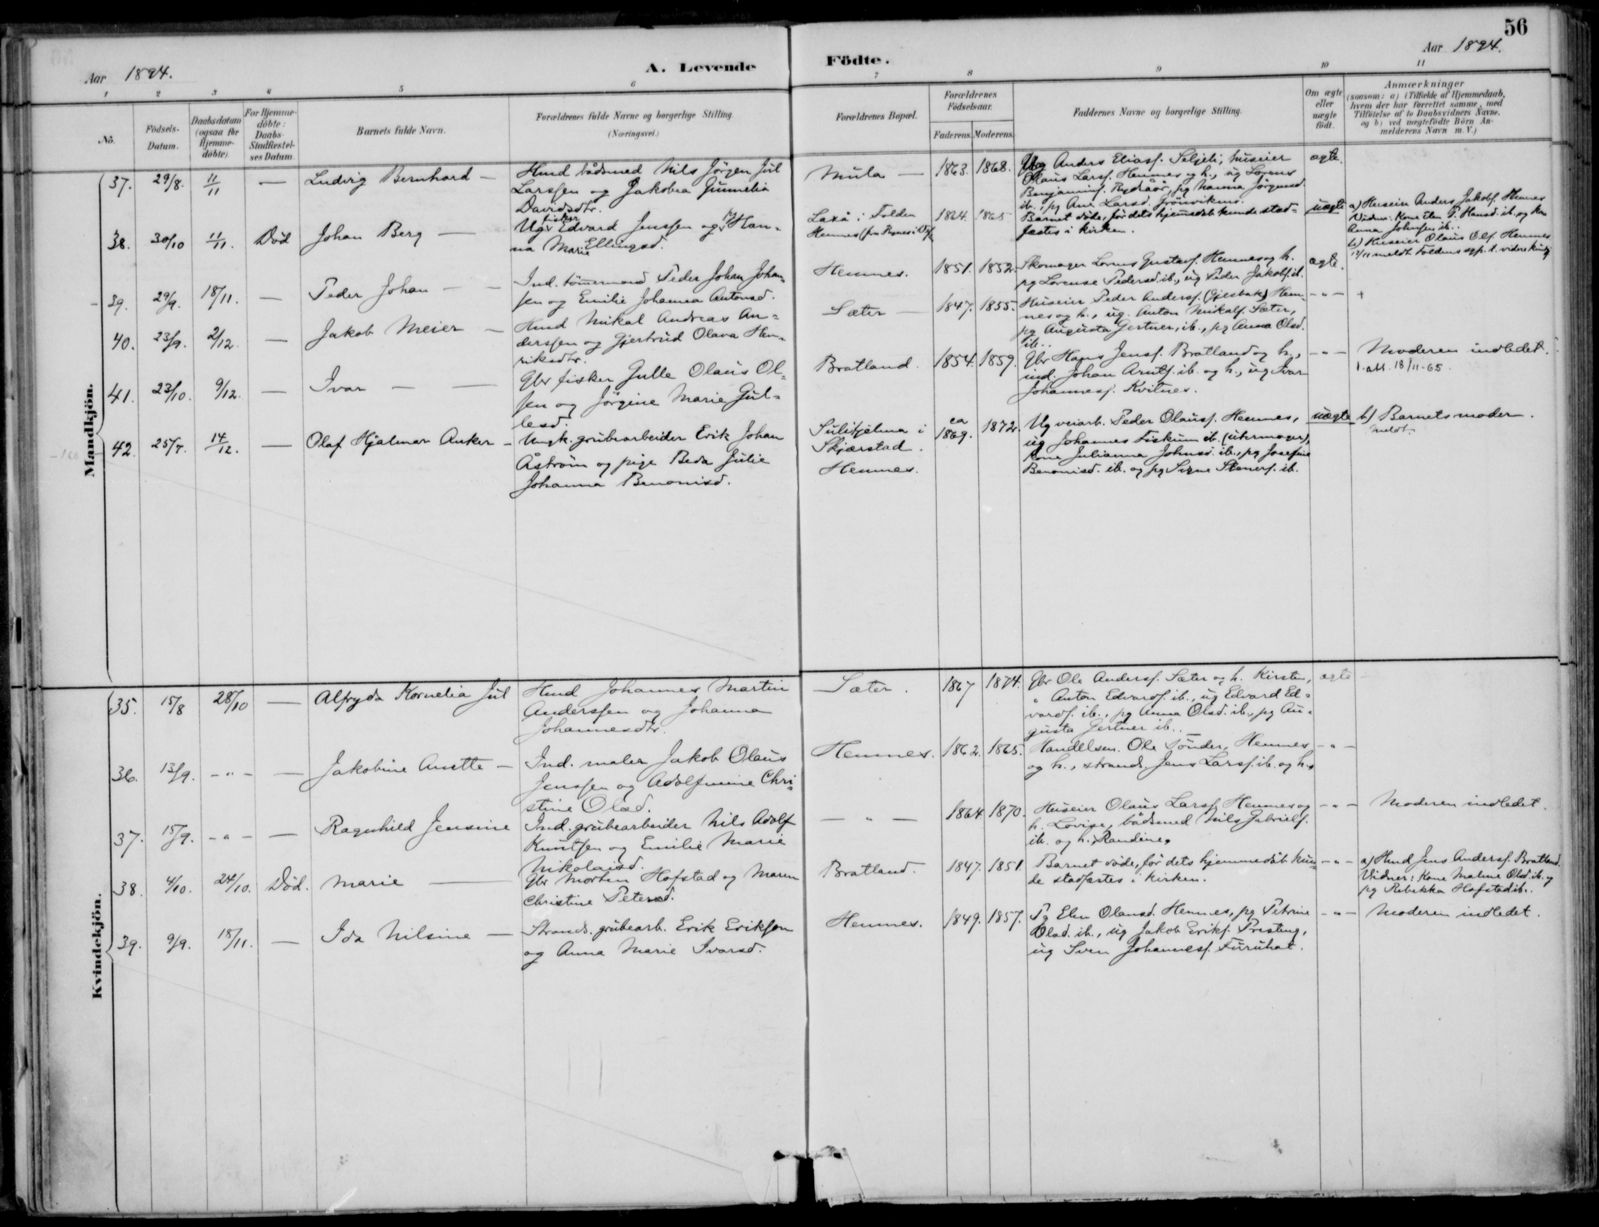 56
Aar 1894.
A. Levende
Fødte.
Aar 1894.
1 2 3 4 5 6 7 8 9 10 11
No.
Fødsels-
Datum.
Daabsdatum
(ogsaa for
Hjemme-
døbte)
For Hjemme-
døbte:
Daabs-
Stadfæstel-
ses Datum
Barnets fulde Navn.
Forældrenes fulde Navne og borgerlige Stilling
(Næringsvei.)
Forældrenes Bopæl.
Forældrenes
Fødselsaar.
Faderens.
Moderens.
Faddernes Navne og borgerlige Stilling.
Om ægte
eller
uægte
født.
Anmærkninger
(saasom: a) i Tilfælde af Hjemmedaab,
hvem der har forrettet samme, med
Tilføielse af to Daabsvidners Navne.
og b) ved uægtefødte Börn An-
melderens Navn m. V.)
Mandkjön.
37. 29/8. 11/11 — Ludvig Bernhard —
Husd bådsmed Nils Jörgen Jul
Larssen og Jakobia Gunnelia
Davidsdtr.
Mula — 1863. 1868.
Anders Eliass. Seljeli, huseier
Olaus Larss. Hennes og h., ug Sörens
Benjamins. Rydåör, pg Nanna Jörgensd.
ib., pg Ane Larsd. Grönsvikens.
ægte.
38. 30/10 11/11. Död Johan Berg —
Ugk fisker Edvard Jenssen og pg Han-
na Marie Ellingsd.
Laxå i Folden
Hennes
1864 1865
Barnet döde, för dets hjemmedåb kunde stad-
festes i kirken.
uægte
a) Huseier Anders Jakobs. Hennes
Vidner: Kone Elen P. Hansd. ib. og Kone
Anna Johnsen ib.
b) Huseier Olaus Ols. Hennes
39. 29/9. 18/11. — Peder Johan — —
Ind. tömmermand Peder Johan Johan-
sen og Emilie Johanna Antonsd.
Hennes. 1851. 1852.
Skomager Lorens Gustavs. Hennes og h.
pg Lorense Pedersd. ib., ug Peder Jakobs. ib.
ægte.
40. 23/9. 2/12. — Jakob Meier —
Husd Mikal Andreas An-
derssen og Gjertrud Olava Hen-
riksdtr.
Sæter — 1847. 1855.
Huseier Peder Anderss. (Gjesbak) Hen-
nes og h., ug. Anton Mikals. Sæter,
pg Augusta Gertner, ib., pg Anna Olsd.
ib..
— " — +
41. 23/10. 9/12. — Ivar — —
Gbr fisker Gulle Olaus Ol-
sen og Jörgine Marie Gul-
lesd.
Bratland. 1854. 1859.
Gbr Hans Jenss. Bratland og h.,
ind. Johan Arnts. ib. og h., ug Ivar
Johanness. Kvitnes.
— " — Moderen indledet.
42. 25/7. 14/12. — Olaf Hjalmar Anker -
Ungk. grubearbeider Erik Johan
Åström og pige Beda Julie
Johanna Benonisd.
Sulitjelma i
Skjærstad.
Hennes.
ca 1869. 1872.
Ug veiarb. Peder Olauss. Hennes,
ug Johannes Fiskum ib. (uhrmager)
Kone Julianna Johnsd. ib., pg Josefine
Benonisd. ib. og pg Signe Skaners. ib.
uægte b) Barnets moder.
meldt.
Kvindekjön.
35. 15/8 28/10 — Alfryda Kornelia Jul
Husd Johannes Martin
Anderssen og Johanna
Johannesdtr.
Sæter. 1867 1874.
Gbr Ole Anderss. Sæter og h. Kirsten,
" Anton Edvards. ib., ug Edvard Ed-
vards. ib., pg Anna Olsd. ib., pg Au-
gusta Gertner ib..
ægte
36. 13/9. - " - — Jakobine Anette —
Ind. maler Jakob Olaus
Jenssen og Adolfmine Chri-
stine Olsd.
Hennes. 1862. 1865.
Handelsm. Ole Tönder, Hennes
og h., strands. Jens Larss. ib. og h.
- " -
37. 15/9. - " - — Ragnhild Jensine
Ind. grubearbeider Nils Adolf
Knutsen og Emilie Marie
Nikolaisd.
— " — 1864 1870.
Huseier Olaus Larss. Hennes og
h. Lovise, bådsmed Nils Gabriels.
ib. og h. Randine.
- " - Moderen indledet.
38. 4/10. 24/10. Död. Marie —
Gbr Morten Hofstad og Maren
Christine Petersd.
Bratland. 1847. 1851
Barnet döde, för dets hjemmedåb kun-
de stadfæstes i kirken.
- " -
a) Husd Jens Anderss. Bratland.
Vidner: Kone Maline Olsd. ib. og
pg Rebekka Hofstad ib.
39. 9/9. 18/11. — Ida Nilsine —
Strands. grubearb. Erik Eriksen
og Anna Marie Ivarsd.
Hennes. 1849. 1857.
Pg Elen Olausd. Hennes, pg Petrine
Olsd. ib., ug Jakob Eriks. Fristing,
ug Sven Johanness. Furuhat.
- " - Moderen indledet.